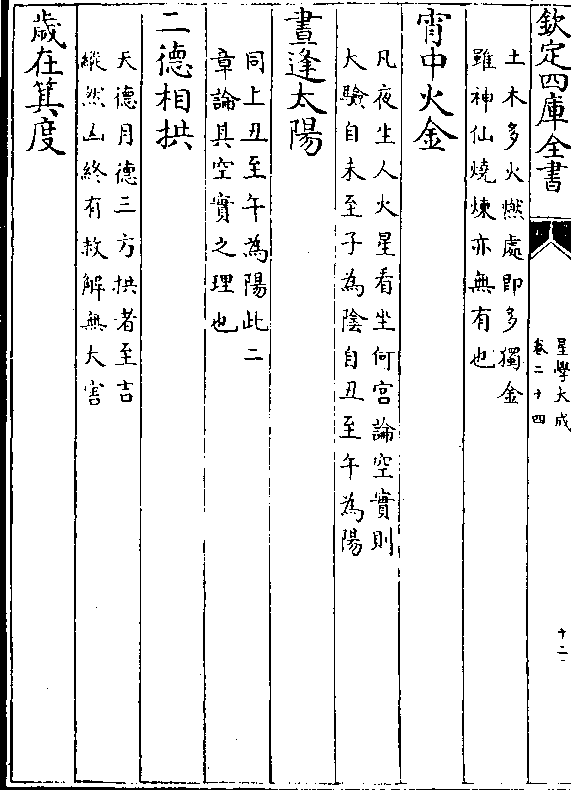 欽定四庫全書
星學大成
卷二十四
十二
土木多火燃處即多獨金
雖神仙燒煉亦無有也
宵中火金
凡夜生人火星看坐何宮論空實則
大驗自未至子為陰自丑至午為陽
晝逢太陽
同上丑至午為陽此二
章論其空實之理也
二德相拱
天德月德三方拱者至吉
縱然凶終有救解無大害
歲在箕度